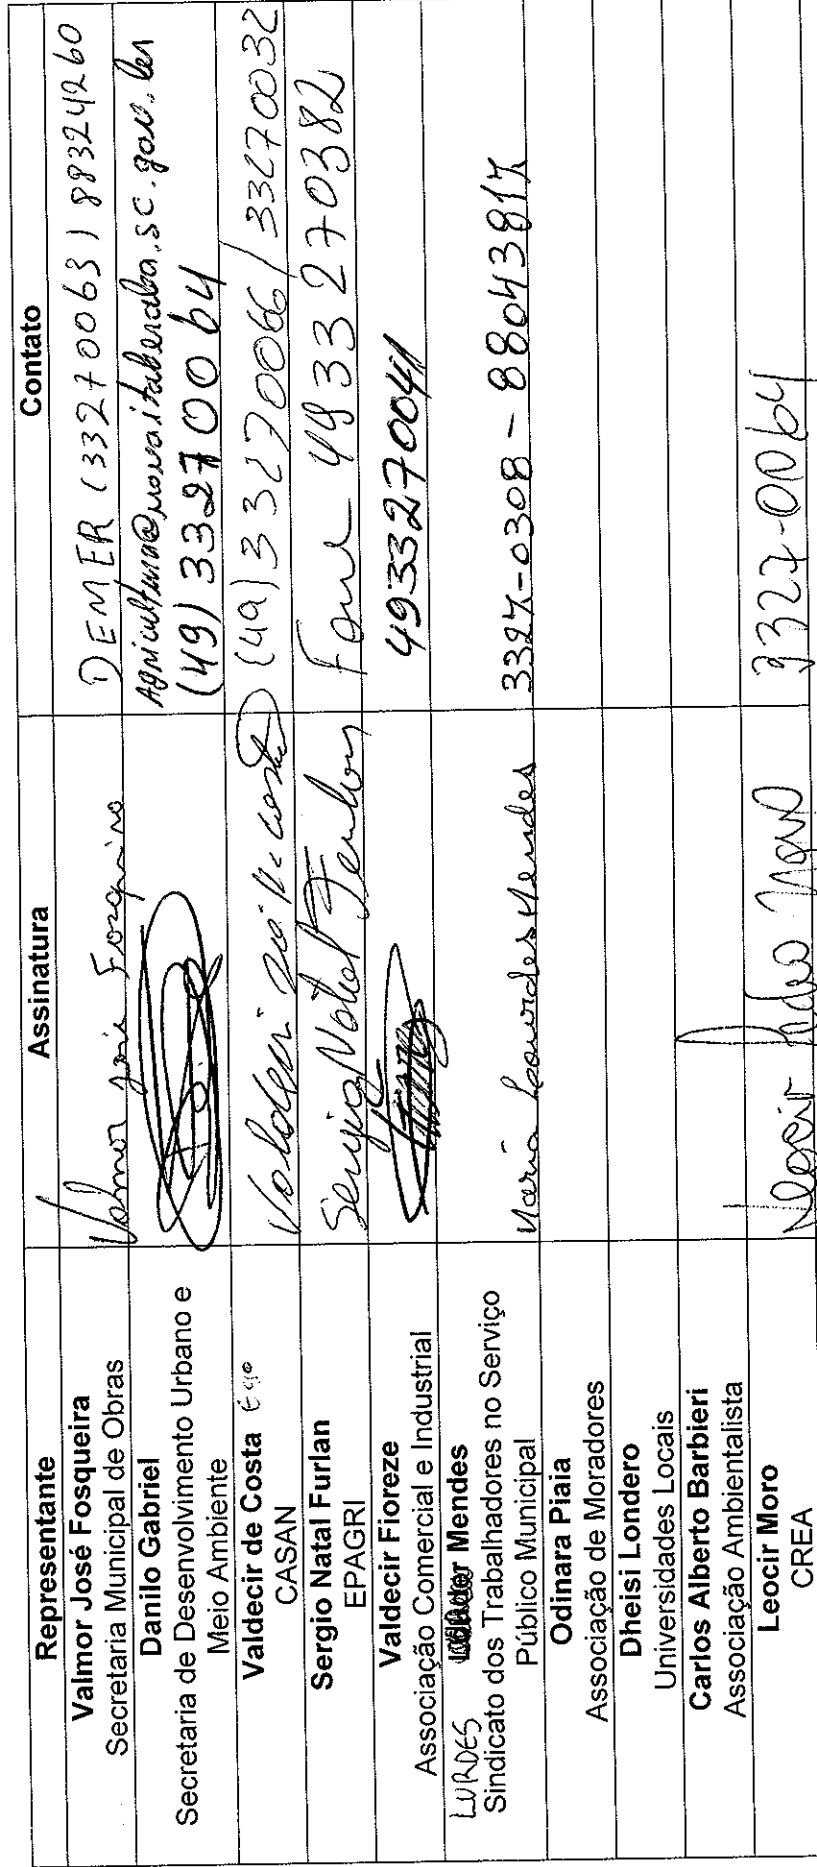 Representante Assinatura Contato
Valmor José Fosqueira
Secretaria Municipal de Obras
DEMER (33270063) 88324260
Danilo Gabriel
Secretaria de Desenvolvimento Urbano e
Meio Ambiente
Agricultura@novaitaberaba.sc.gov.br
(49) 33270064
Valdecir de Costa
CASAN
(49) 33270066 / 33270032
Sergio Natal Furlan
EPAGRI
Sergio Natal Furlan
Fone 4933270382
Valdecir Fioreze
Associação Comercial e Industrial
4933270041
LURDES Mendes
Sindicato dos Trabalhadores no Serviço
Público Municipal
Maria Lourdes Mendes
3327-0308 - 88043817
Odinara Piaia
Associação de Moradores
Dheisi Londero
Universidades Locais
Carlos Alberto Barbieri
Associação Ambientalista
Leocir Moro
CREA
3327-0064